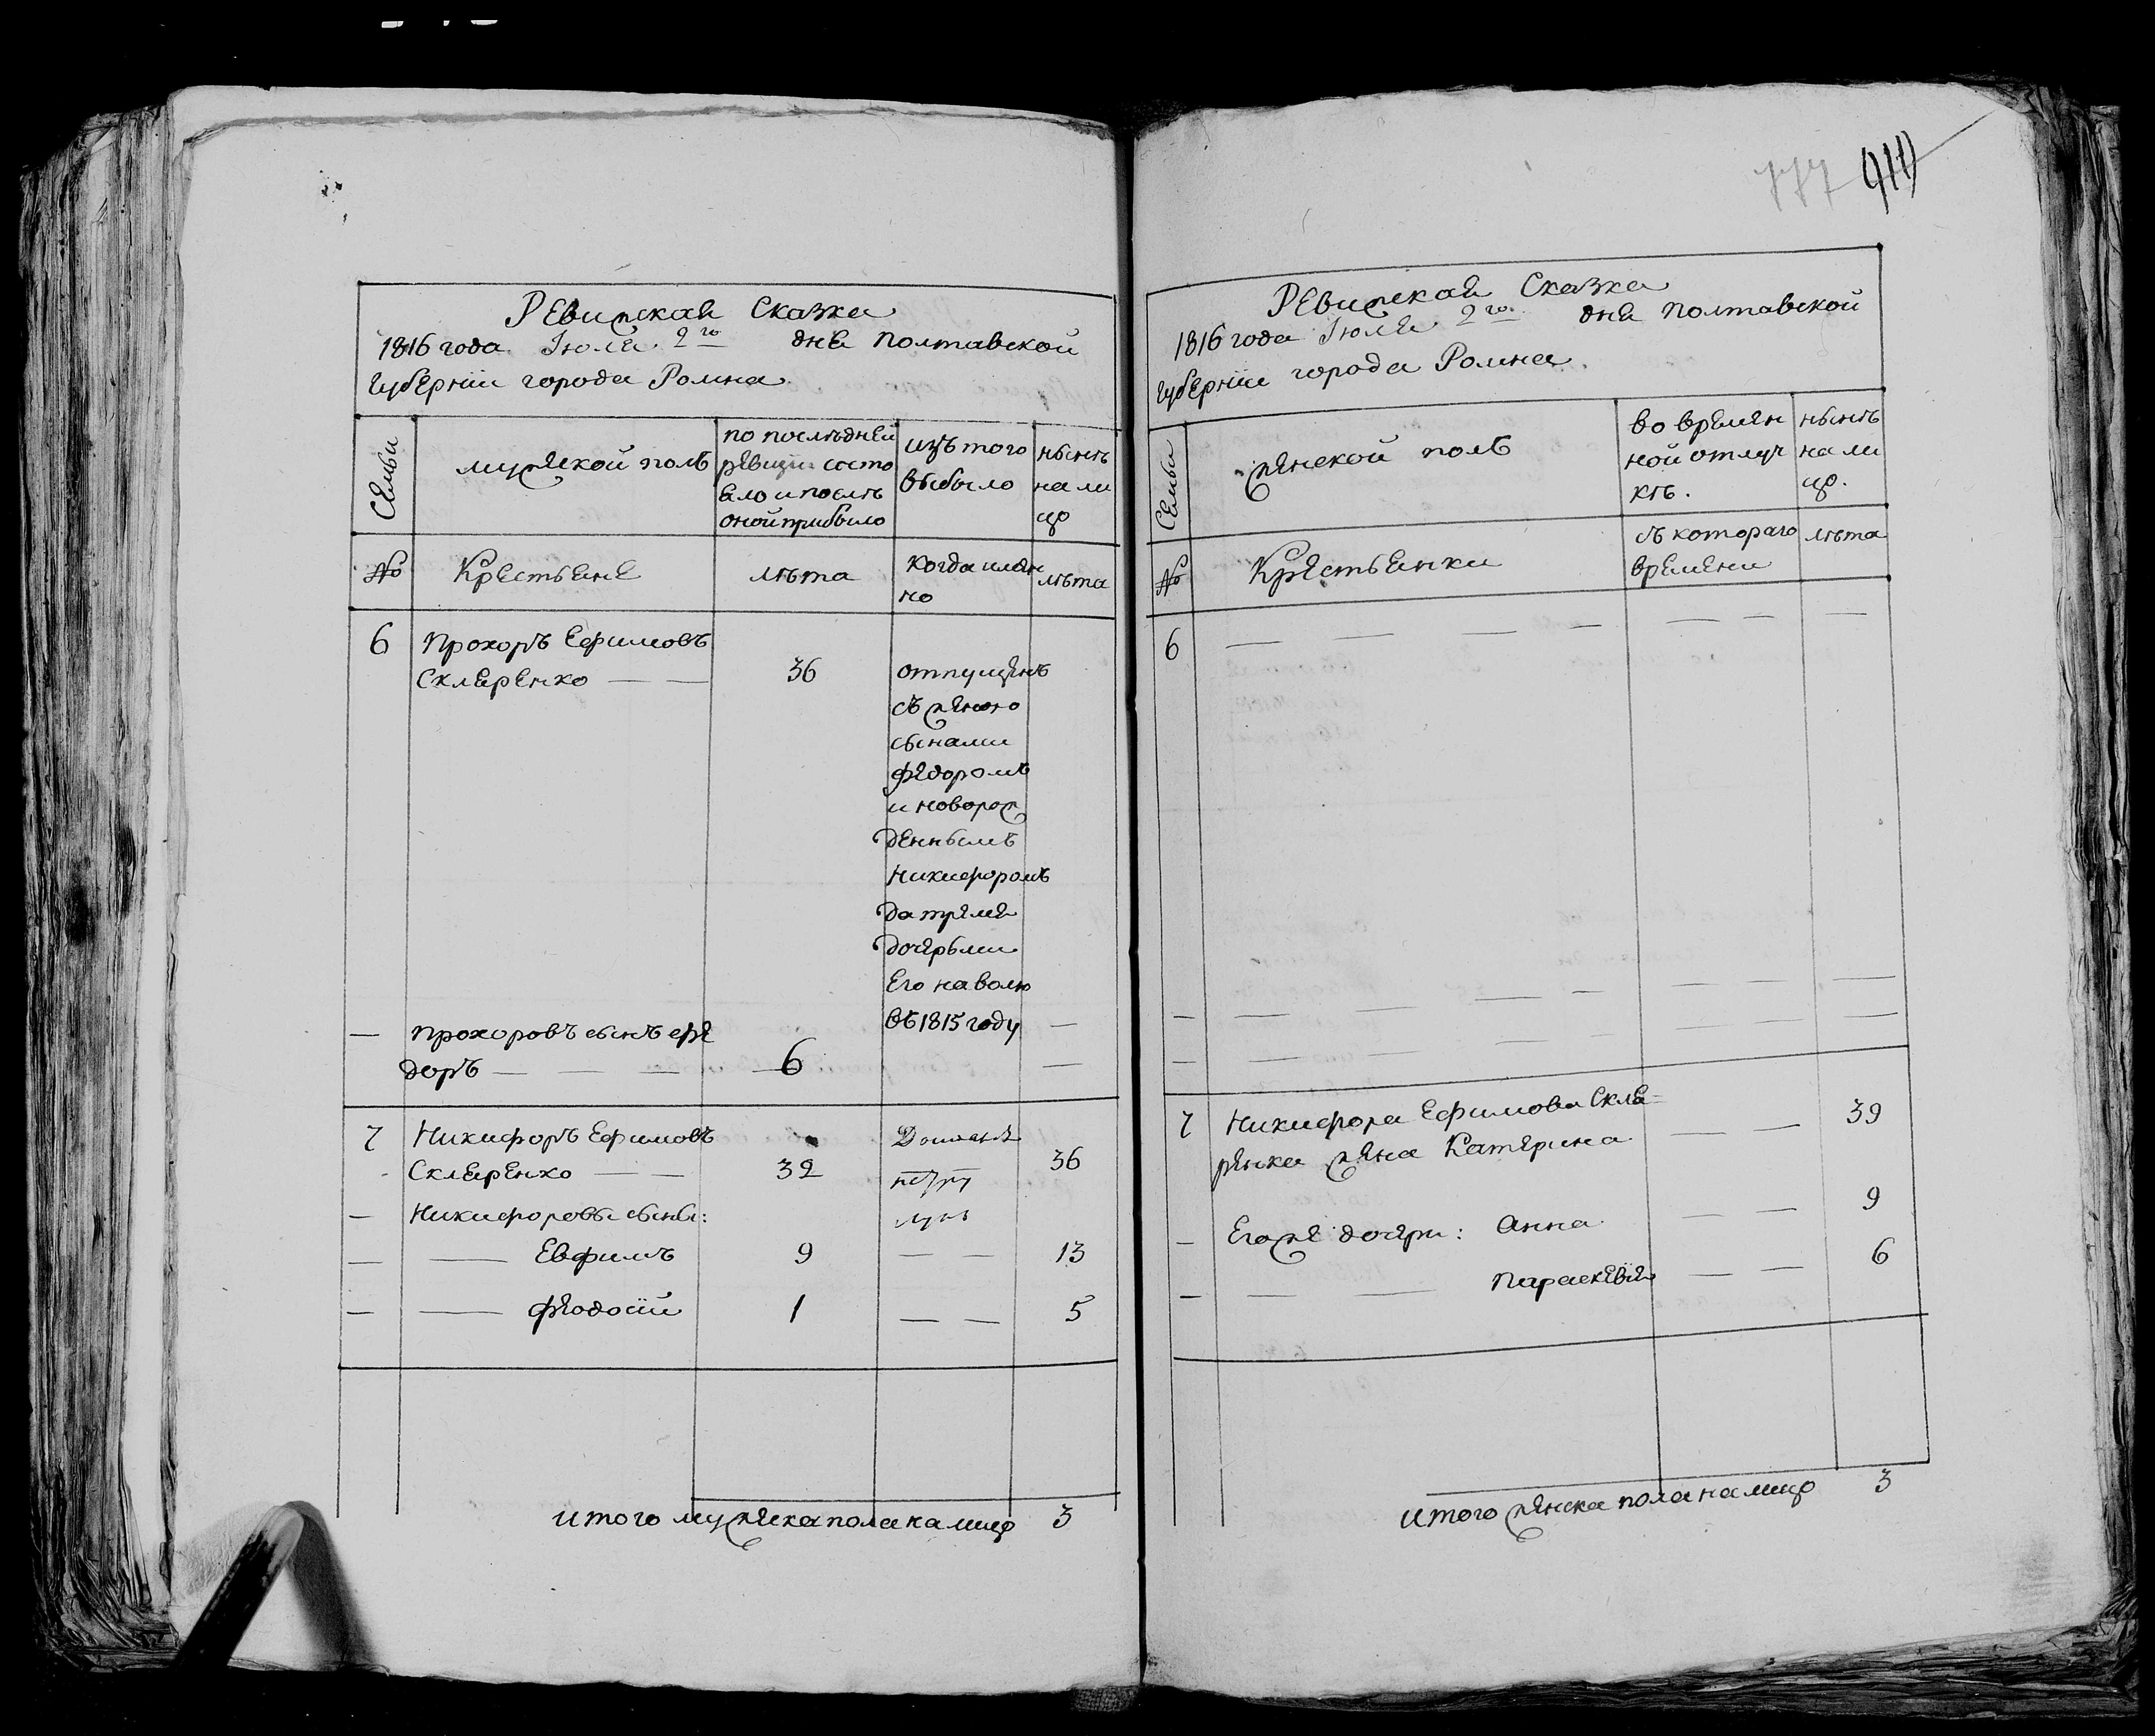 Ревижская Сказка
1816 года Іюля 2го дня Полтавской
Губерніи города Ромна
Семьи
мужеской полъ
по послѣдней
ревизіи состо
яло и послѣ
оной прибыло
изъ того
выбыло
нынѣ
на ли
цо
№
Крестьяне
лѣта
когда имян
но
лѣта
6
Прохоръ Ефимовъ
Скляренко — —
36
отпущенъ
съ женою
сынами
Федоромъ
и новорож
деннымъ
Никифоромъ
да тремя
дочерьми
его на волю
въ 1815 году
—
— Прохоровъ сынъ Фе
доръ — — —
6
—
7
Никифоръ Ефимовъ
Скляренко — —
32
36
— Никифоровы сыны:
— — Евфимъ 9 — — 13
— — Феодосій 1 — — 5
итого мужеска пола на лицо 3
777 919
Ревижская Сказка
1816 года Іюля 2го дня Полтавской
Губерніи города Ромна
Семьи
женской полъ
во времян
ной отлуч
кѣ.
нынѣ
на ли
цо.
№
Крестьянки
съ котораго
времени
лѣта
6 — — — — — — —
— — — — — — — —
— — — — —
7
Никифора Ефимова Скля=
ренка жена Катерина — — 39
— Его же дочери: Анна — — 9
— — — Параскевія — — 6
итого женска пола на лицо 3